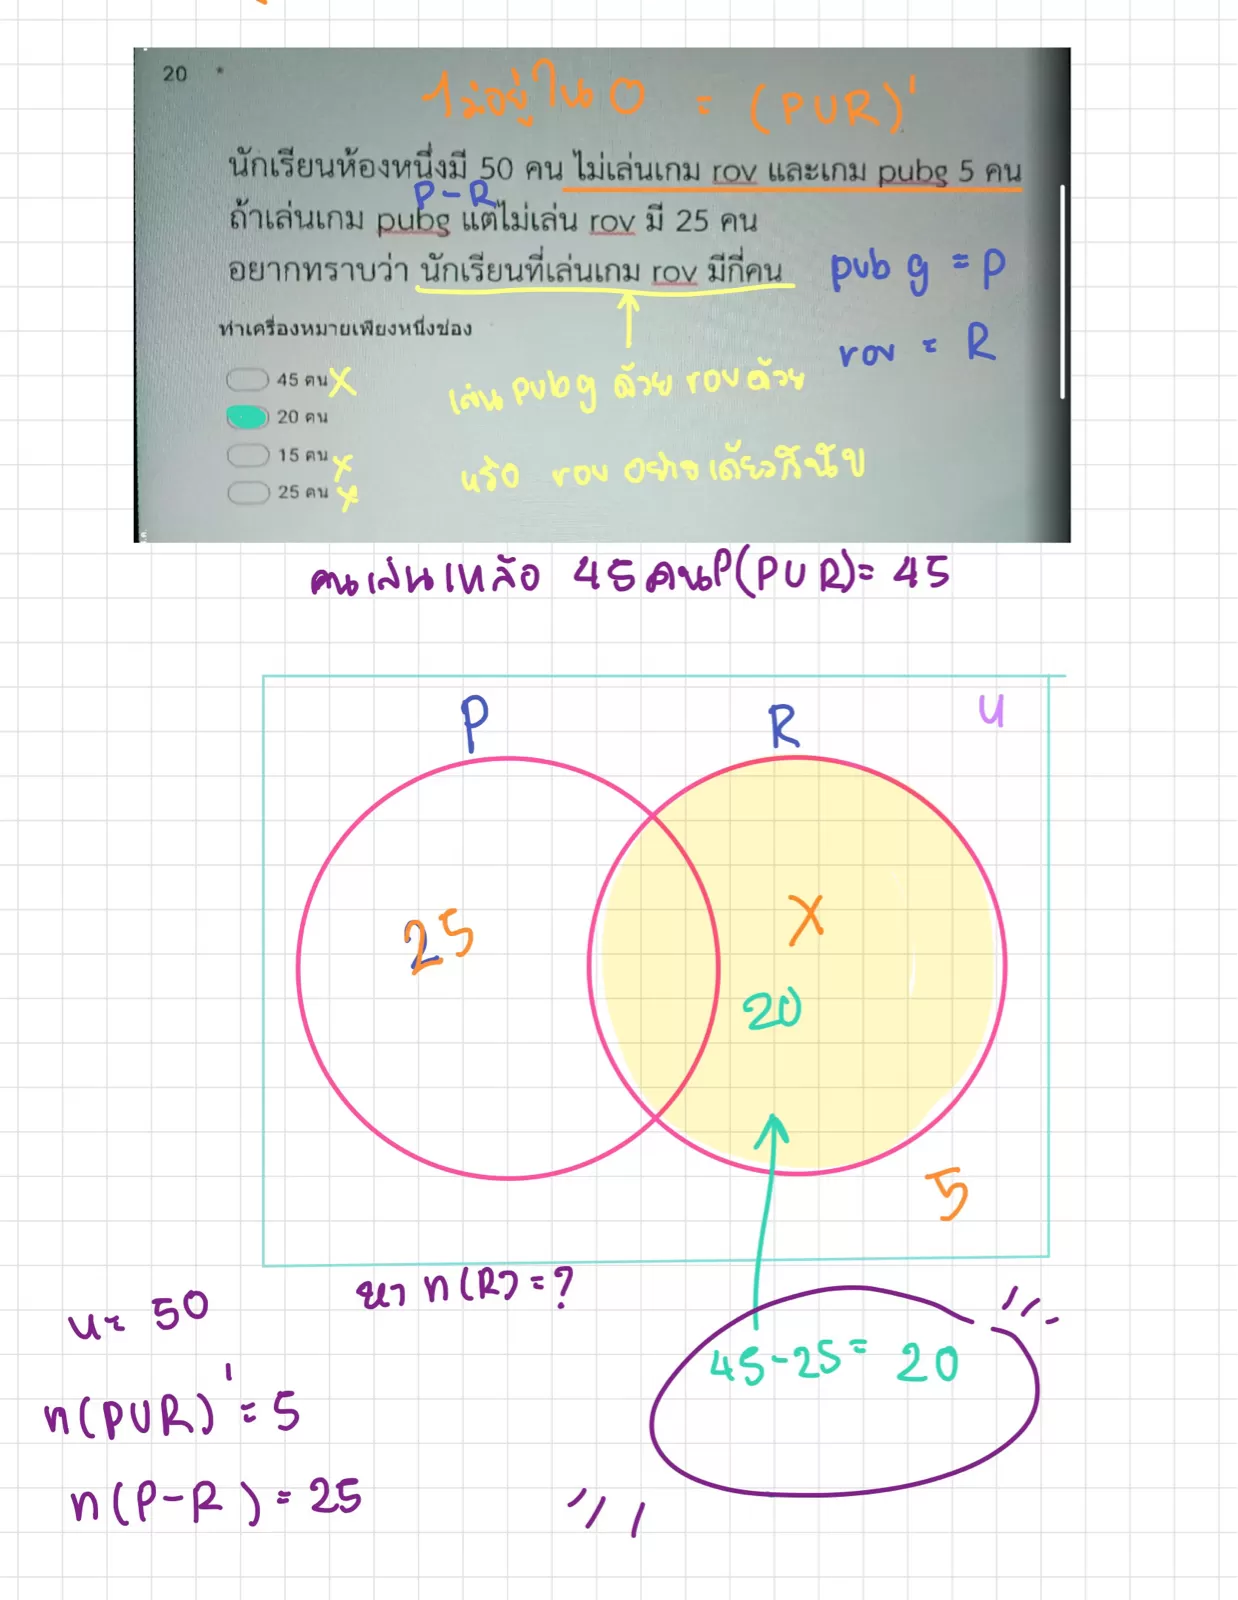 20 *
ไม่อยู่ใน O = (PUR)'
นักเรียนห้องหนึ่งมี 50 คน ไม่เล่นเกม rov และเกม pubg 5 คน
P-R
ถ้าเล่นเกม pubg แต่ไม่เล่น rov มี 25 คน
อยากทราบว่า นักเรียนที่เล่นเกม rov มีกี่คน
pubg = P
ทำเครื่องหมายเพียงหนึ่งช่อง
rov = R
45 คน X
เล่น pubg ด้วย rov ด้วย
20 คน
15 คน X
หรือ rov อย่างเดียวก็นับ
25 คน X
คนเล่นเหลือ 45 คน P(PUR)= 45
P R U
25 X
20
5
หา n(R)=?
U= 50
45-25= 20
n(PUR)'= 5
n(P-R)= 25